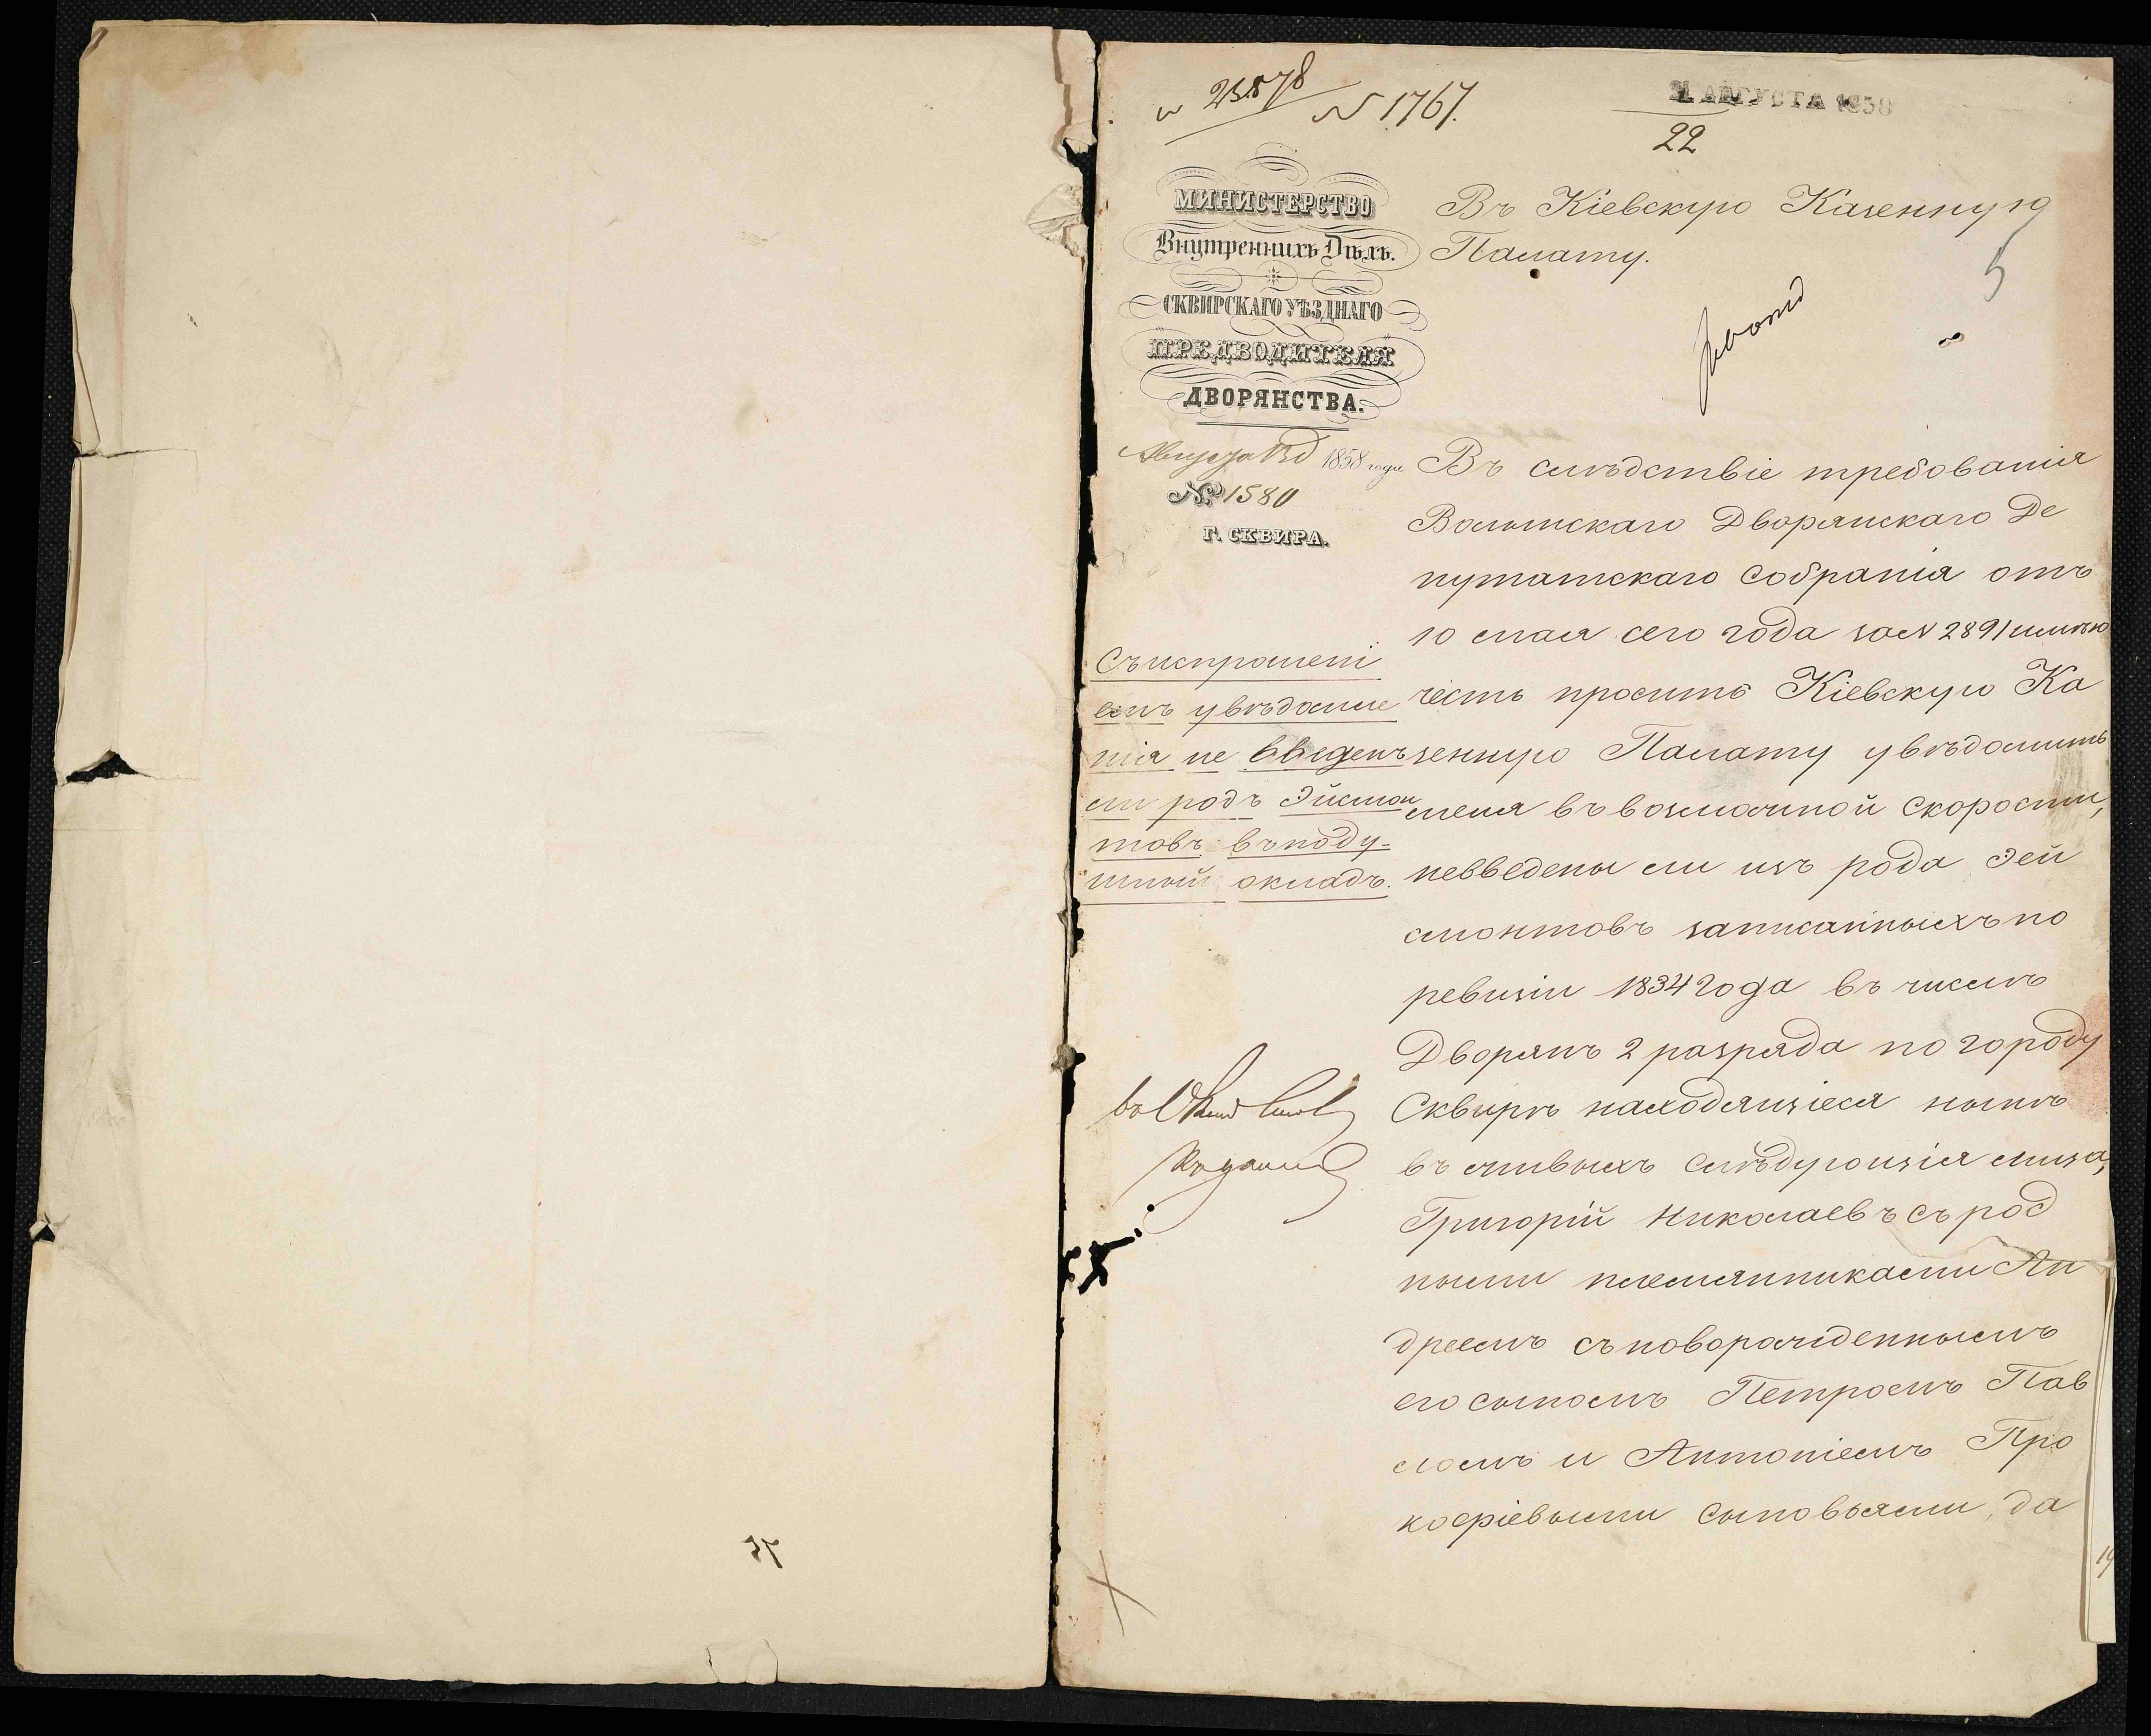 23878
N 1767.
21 АВГУСТА 1858
22
МИНИСТЕРСТВО
Внутреннихъ Дѣлъ.
СКВИРСКАГО УѢЗДНАГО
ПРЕДВОДИТЕЛЯ
ДВОРЯНСТВА.
Августа 1858 года
№ 1580
Г. СКВИРА.
Въ Кіевскую Казенную
Палату.
5
Съ испрошені
емъ увѣдомле
нія не введенъ
ли родъ Эйсмон
товъ въ поду-
шный окладъ.
Въ слѣдствіе требованія
Волынскаго Дворянскаго Де
путатскаго Собранія отъ
10 мая сего года за N 2891 имѣю
честь просить Кіевскую Ка
зенную Палату увѣдомить
меня въ возможной скорости,
невведены ли изъ рода Эей
смонтовъ записанныхъ по
ревизіи 1834 года въ числѣ
Дворянъ 2 разряда по городу
Сквирѣ находящіеся нынѣ
въ живыхъ слѣдующія лица,
Григорій Николаевъ съ род
ными племянниками Ан
дреемъ съ новорожденнымъ
его сыномъ Петромъ Пав
ломъ и Антоніемъ Про
кофіевыми сыновьями, да
19